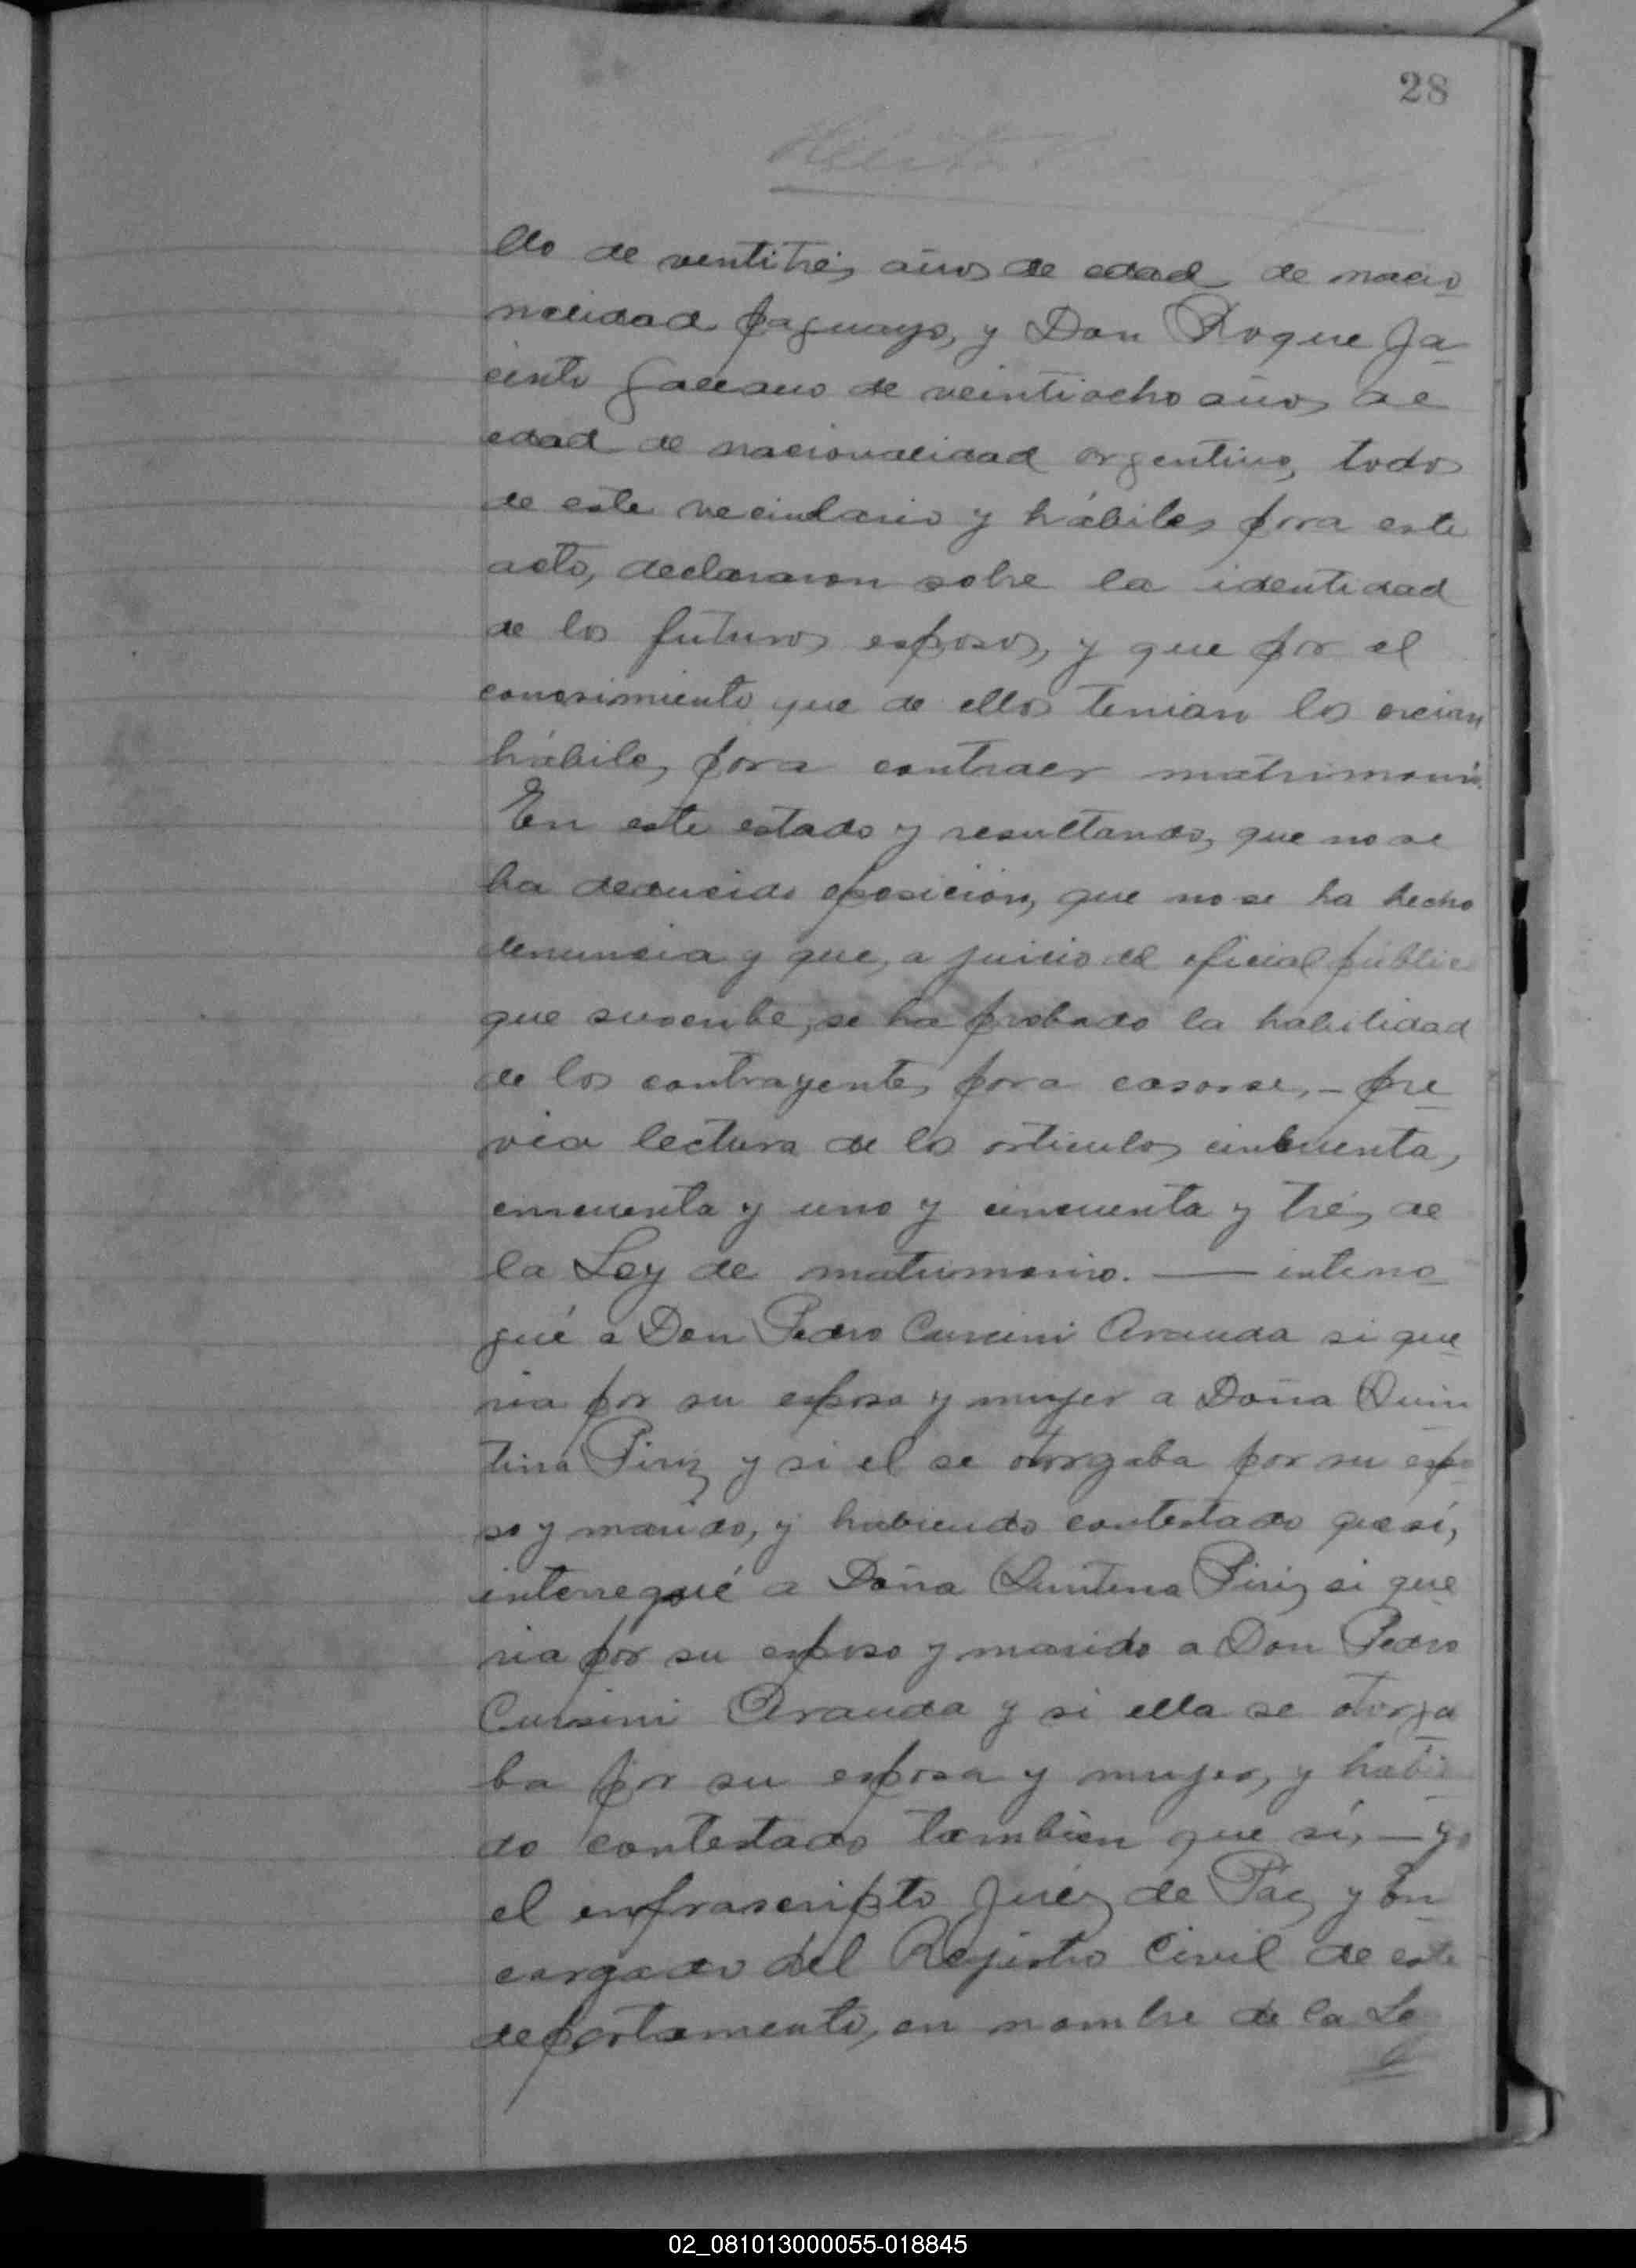 28
llo de ventitrés años de edad de nacio
nalidad paguayo, y Don Roque Ja
cinto Galeano de veintiocho años de
edad de nacionalidad argentino, todos
de este vecindario y hábiles para este
acto, declararon sobre la identidad
de los futuros esposos, y que por el
conosimiento que de ellos tenian los creian
hábiles para contraer matrimonio.
En este estado y resultando, que no se
ha deducido oposición, que no se ha hecho
denuncia y que, a juicio del oficial público
que suscribe, se ha probado la habilidad
de los contrayentes para casarse, – pre
via lectura de los articulos cinbuenta,
cincuenta y uno y cincuenta y trés de
la Ley de matrimonio. — interro
gué a Don Pedro Cursini Aranda si que
ria por su esposa y mujer a Doña Quin
tina Piriz y si el se otorgaba por su espo
so y marido, y habiendo contestado que sí,
interregoué a Doña Quintina Piriz si que
ria por su esposo y marido a Don Pedro
Cursini Aranda y si ella se otorga
ba por su esposa y mujer, y habien
do contestado tambien que sí, — yo
el enfrascripto Juéz de Páz y En
cargado del Rejistro Civil de este
departamento, en nombre de la Le
02_081013000055-018845